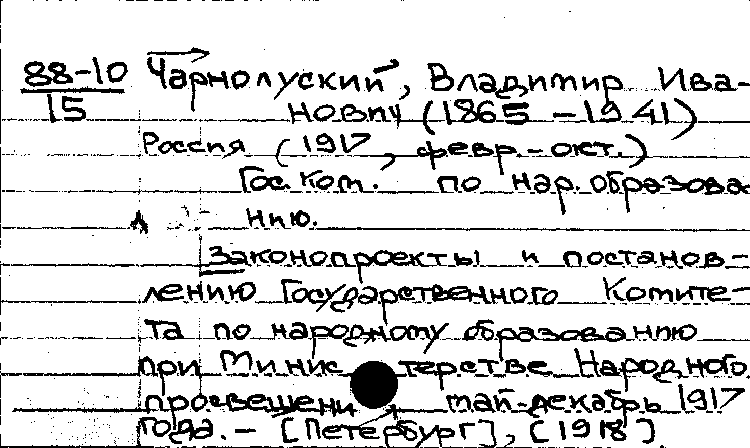 88-10 Чарнолуский, Владимир Ива-
15 нович (1865 - 1941)
Россия (1917, февр.-окт.)
Гос. ком. по нар. образова
нию.
Законопроекты и постанов-
лению Государственного Комите-
та по народному образованию
при Министерстве Народного
просвещени май-декабрь 1917
года. - [Петербург], [1918].